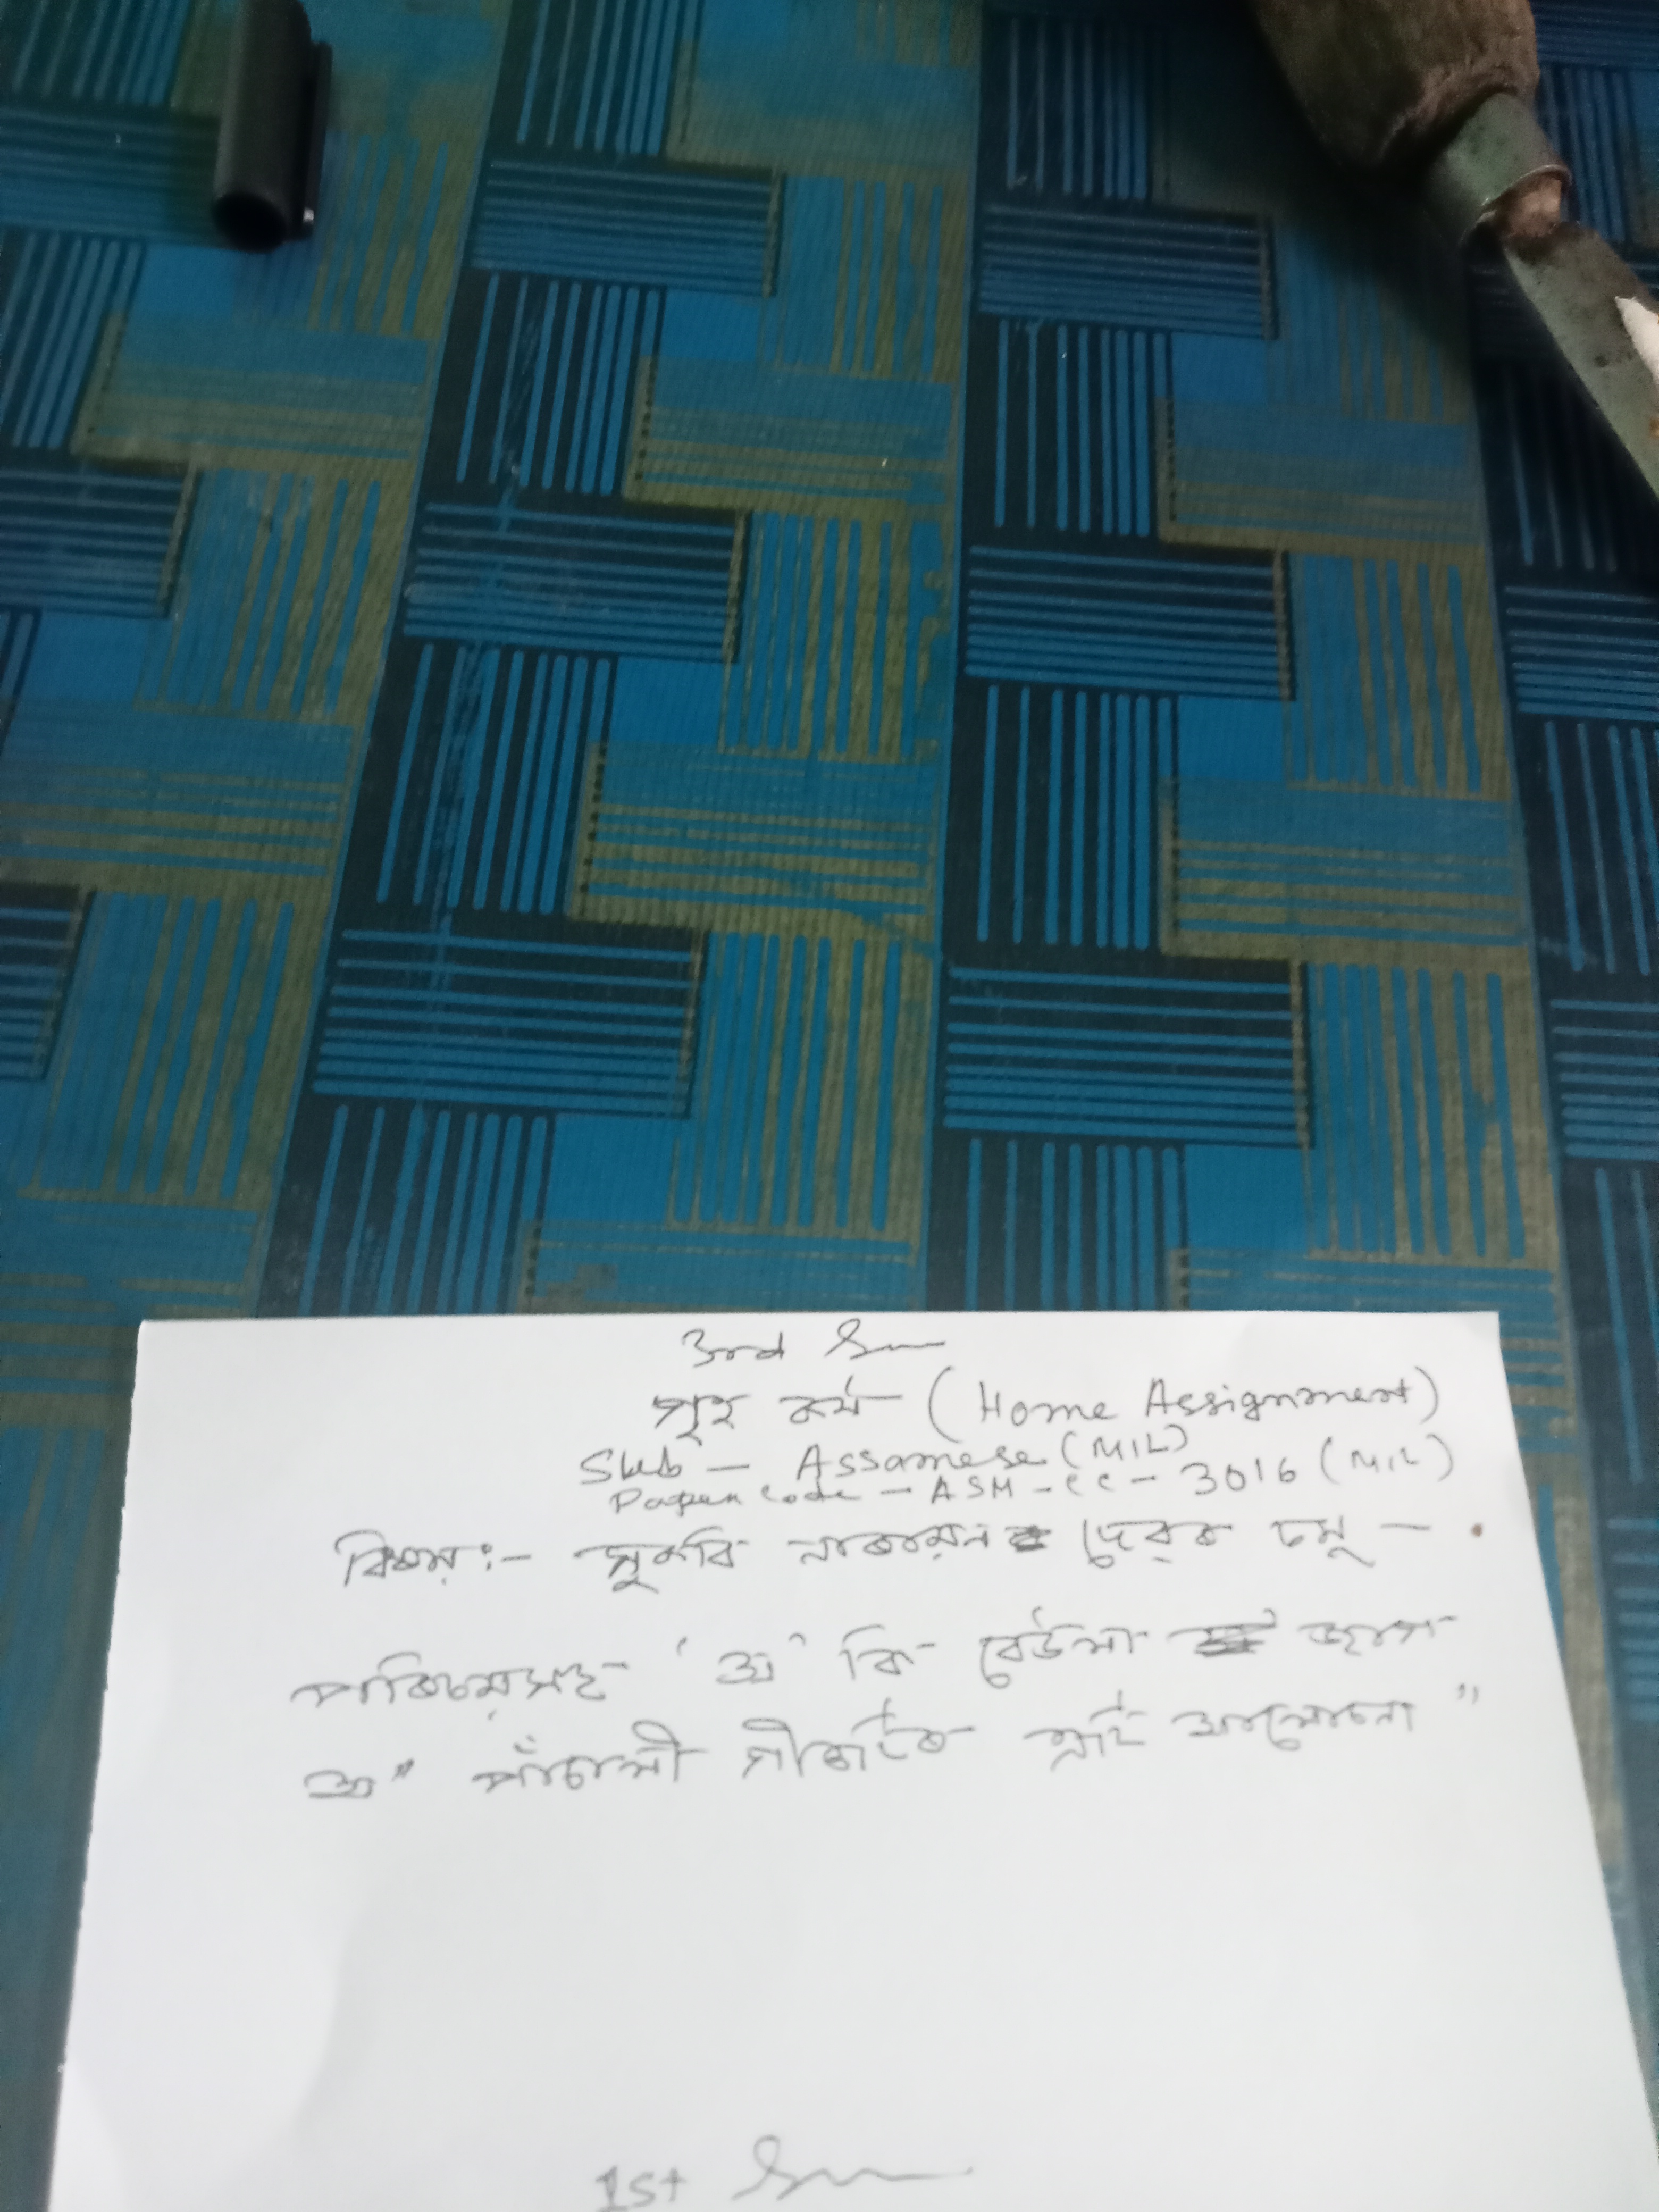 3rd Sem
গৃহ কৰ্ম (Home Assignment)
Sub – Assamese (MIL)
Paper Code – ASM – CC – 3016 (MIL)
বিষয়:- সুকবি নাৰায়ন দেৱৰ চমু –
পৰিচয়সহ 'অ' কি বেউলা
অ" পাঁচালী গীতটিৰ এটি আলোচনা"
1st Sem